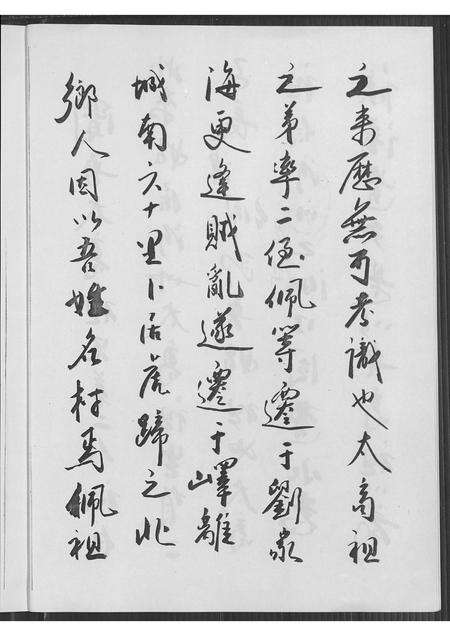 之来歷無可考識也太高祖
之弟率二侄佩等遷于劉家
海更逢賊亂遂遷于嶧離
城南六十里卜居虎蹄之北
鄉人因以吾姓名村焉佩祖